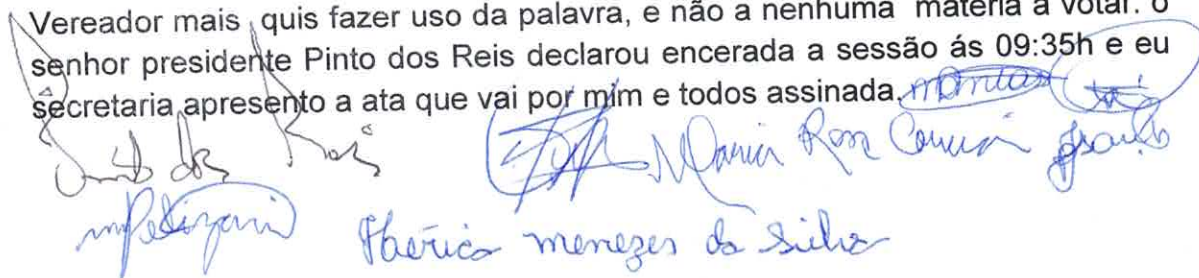 Vereador mais , quis fazer uso da palavra, e não a nenhuma materia a votar. o
senhor presidente Pinto dos Reis declarou encerada a sessão ás 09:35h e eu
secretaria apresento a ata que vai por mim e todos assinada.
dos Reis Maria Rosa
menezes da Silva